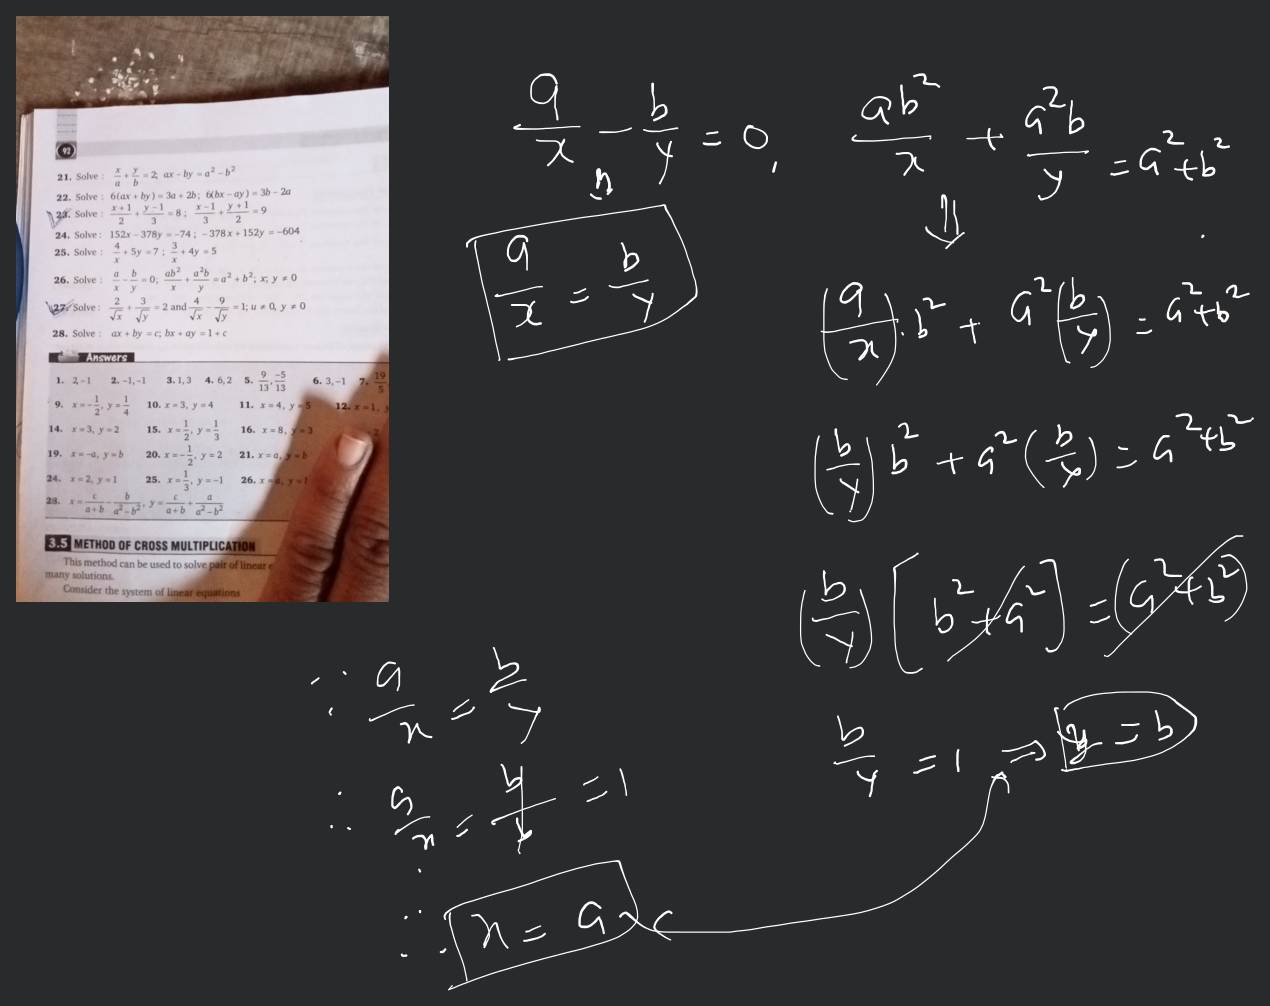 92
21. Solve : x/a + y/b = 2; ax − by = a² − b²
22. Solve : 6(ax + by) = 3a + 2b; 6(bx − ay) = 3b − 2a
23. Solve : (x+1)/2 + (y−1)/3 = 8; (x−1)/3 + (y+1)/2 = 9
24. Solve : 152x − 378y = −74; −378x + 152y = −604
25. Solve : 4/x + 5y = 7; 3/x + 4y = 5
26. Solve : a/x − b/y = 0; ab²/x + a²b/y = a² + b²; x, y ≠ 0
27. Solve : 2/√x + 3/√y = 2 and 4/√x − 9/√y = 1; u ≠ 0, y ≠ 0
28. Solve : ax + by = c; bx + ay = 1 + c
Answers
1. 2, −1 2. −1, −1 3. 1, 3 4. 6, 2 5. 9/13, −5/13 6. 3, −1 7. 19/5
9. x = −1/2, y = 1/4 10. x = 3, y = 4 11. x = 4, y = 5 12. x = 1,
14. x = 3, y = 2 15. x = 1/2, y = 1/3 16. x = 8, y = 3
19. x = −a, y = b 20. x = −1/2, y = 2 21. x = a, y = b
24. x = 2, y = 1 25. x = 1/3, y = −1 26. x = a, y =
28. x = c/(a+b) − b/(a²−b²), y = c/(a+b) + a/(a²−b²)
3.5 METHOD OF CROSS MULTIPLICATION
This method can be used to solve pair of linear e
many solutions.
Consider the system of linear equations
a/x − b/y = 0, ab²/x + a²b/y = a² + b²
⇓
a/x = b/y
(a/x)·b² + a²(b/y) = a² + b²
(b/y) b² + a² (b/y) = a² + b²
(b/y) [b² + a²] = (a² + b²)
b/y = 1 ⇒ y = b
∵ a/x = b/y
∴ a/x = b/b = 1
∴ x = a